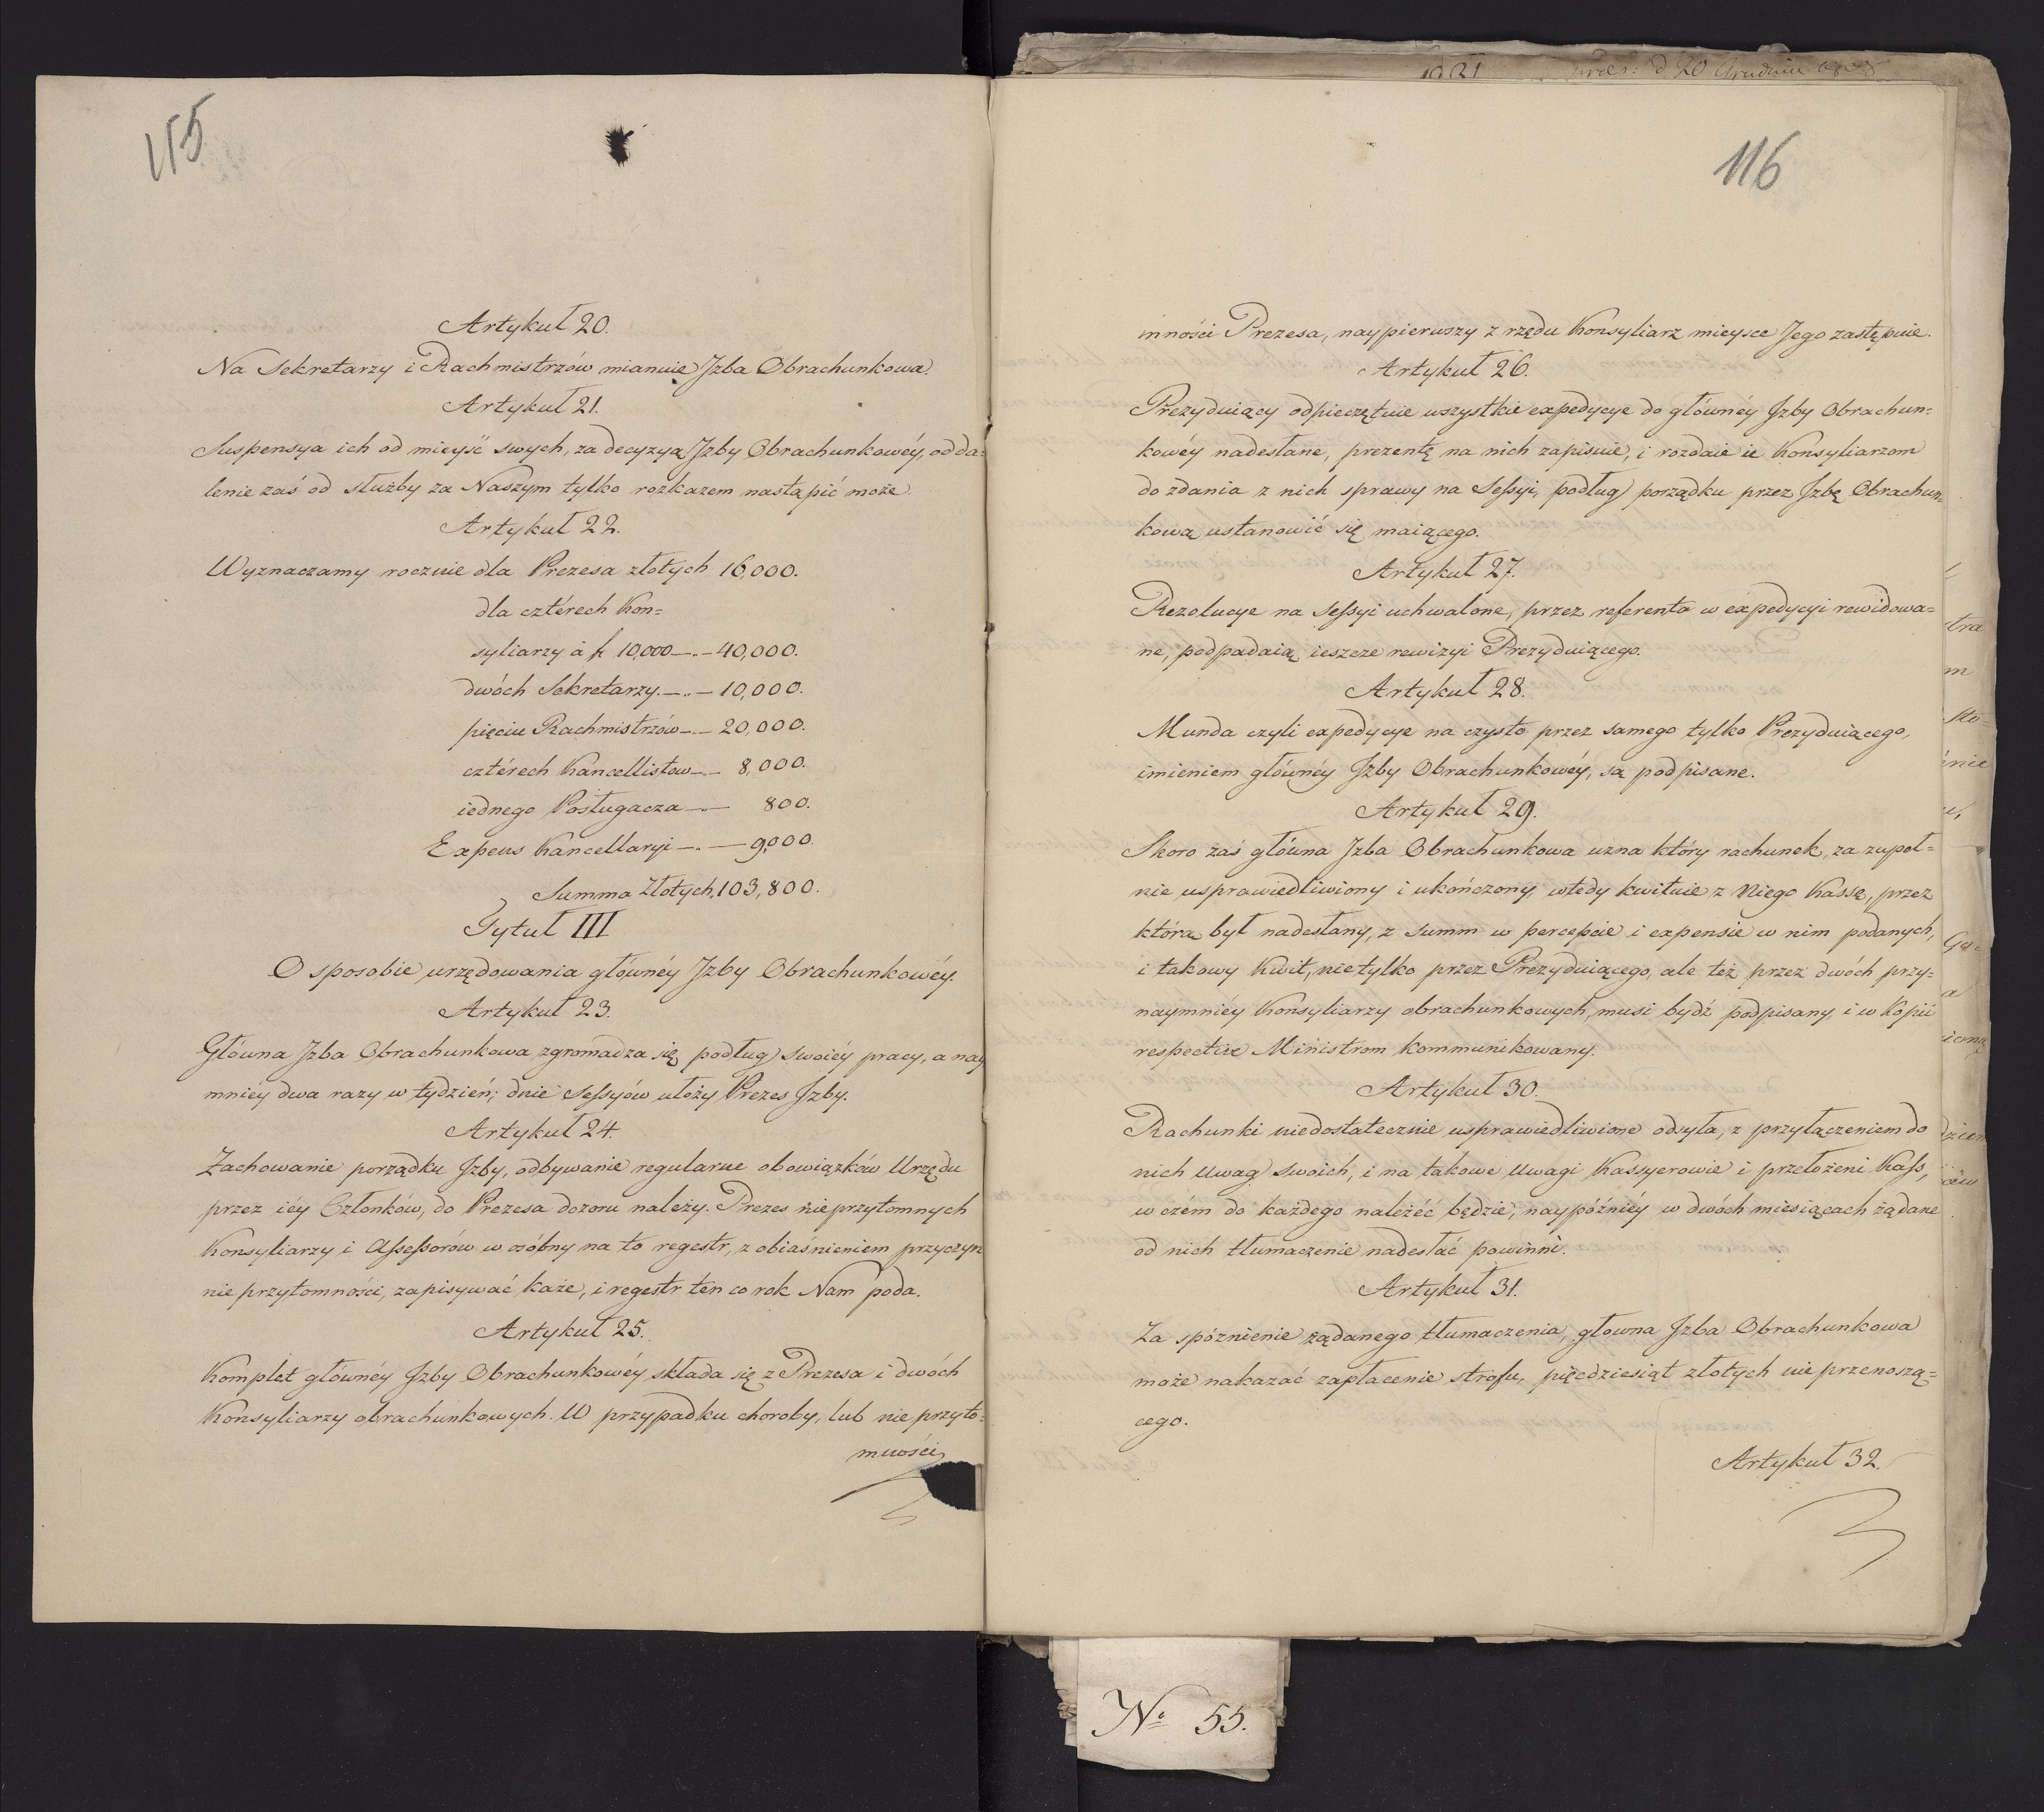 115
Artykuł 20.
Na Sekretarzy i Rachmistrzów mianuie Jzba Obrachunkowa.
Artykuł 21.
Suspensya ich od mieyść swych, za decyzyą Jzby Obrachunkowéy, odda=
lenie zaś od służby za Naszym tylko rozkazem nastąpić może.
Artykuł 22.
Wyznaczamy rocznie dla Prezesa złotych 16,000.
dla cztérech Kon=
syliarzy à f. 10,000 —„— 40,000.
dwóch Sekretarzy. —„— 10,000.
pięciu Rachmistrzów —„— 20,000.
cztérech Kancellistow —„— 8,000.
iednego Posługacza —„— 800.
Expens Kancellaryi —„— 9,000.
Summa Złotych, 103,800.
Tytuł III
O sposobie urzędowania główney Jzby Obrachunkowéy.
Artykuł 23.
Główna Jzba Obrachunkowa zgromadza się podług swoiéy pracy, a nay
mniéy dwa razy w tydzień; dnie Sessyów ułoży Prezes Jzby.
Artykuł 24.
Zachowanie porządku Jzby, odbywanie regularne obowiązków Urzędu
przez iéy Członków, do Prezesa dozoru należy. Prezes nieprzytomnych
Konsyliarzy i Assessorów w osóbny na to regestr, z obiaśnieniem przyczyn
nieprzytomności, zapisywać każe, i regestr ten co rok Nam poda.
Artykuł 25.
Komplet główney Jzby Obrachunkowéy składa się z Prezesa i dwóch
Konsyliarzy obrachunkowych. W przypadku choroby, lub nieprzyto=
mności
prez: d 20 Grudnia 1808
116
mności Prezesa, naypierwszy z rzędu Konsyliarz mieysce Jego zastępuie.
Artykuł 26.
Prezyduiący odpieczętuie wszystkie expedycye do główney Jzby Obrachun=
kowéy nadesłane, prezentę na nich zapisuie, i rozdaie ie Konsyliarzom
do zdania z nich sprawy na Sessyi, podług porządku przez Jzbę Obrachun=
kową ustanowić się maiącego.
Artykuł 27.
Rezolucye na sessyi uchwalone, przez referenta w expedycyi rewidowa=
ne, podpadaią ieszcze rewizyi Prezyduiącego.
Artykuł 28.
Munda czyli expedycye na czysto przez samego tylko Prezyduiącego,
imieniem główney Jzby Obrachunkowéy, są podpisane.
Artykuł 29.
Skoro zaś główna Jzba Obrachunkowa uzna który rachunek, za zupeł=
nie usprawiedliwiony i ukończony, wtedy kwituie z Niego Kassę, przez
którą był nadesłany, z summ w percepcie i expensie w nim podanych,
i takowy Kwit, nietylko przez Prezyduiącego, ale też przez dwóch przy=
naymniéy Konsyliarzy obrachunkowych, musi bydź podpisany, i w Kopii
respective Ministrom kommunikowany.
Artykuł 30.
Rachunki niedostatecznie usprawiedliwione odsyła, z przyłączeniem do
nich Uwag swoich, i na takowe Uwagi Kassyerowie i przełożeni Kass,
w czém do każdego należéć będzie, naypóźniéy w dwóch miesiącach żądane
od nich tłumaczenie nadesłać powinni.
Artykuł 31.
Za spóznienie żądanego tłumaczenia, głowna Jzba Obrachunkowa
może nakazać zapłacenie strofu, pięćdziesiąt złotych nie przenoszą=
cego.
Artykuł 32.
No 55.